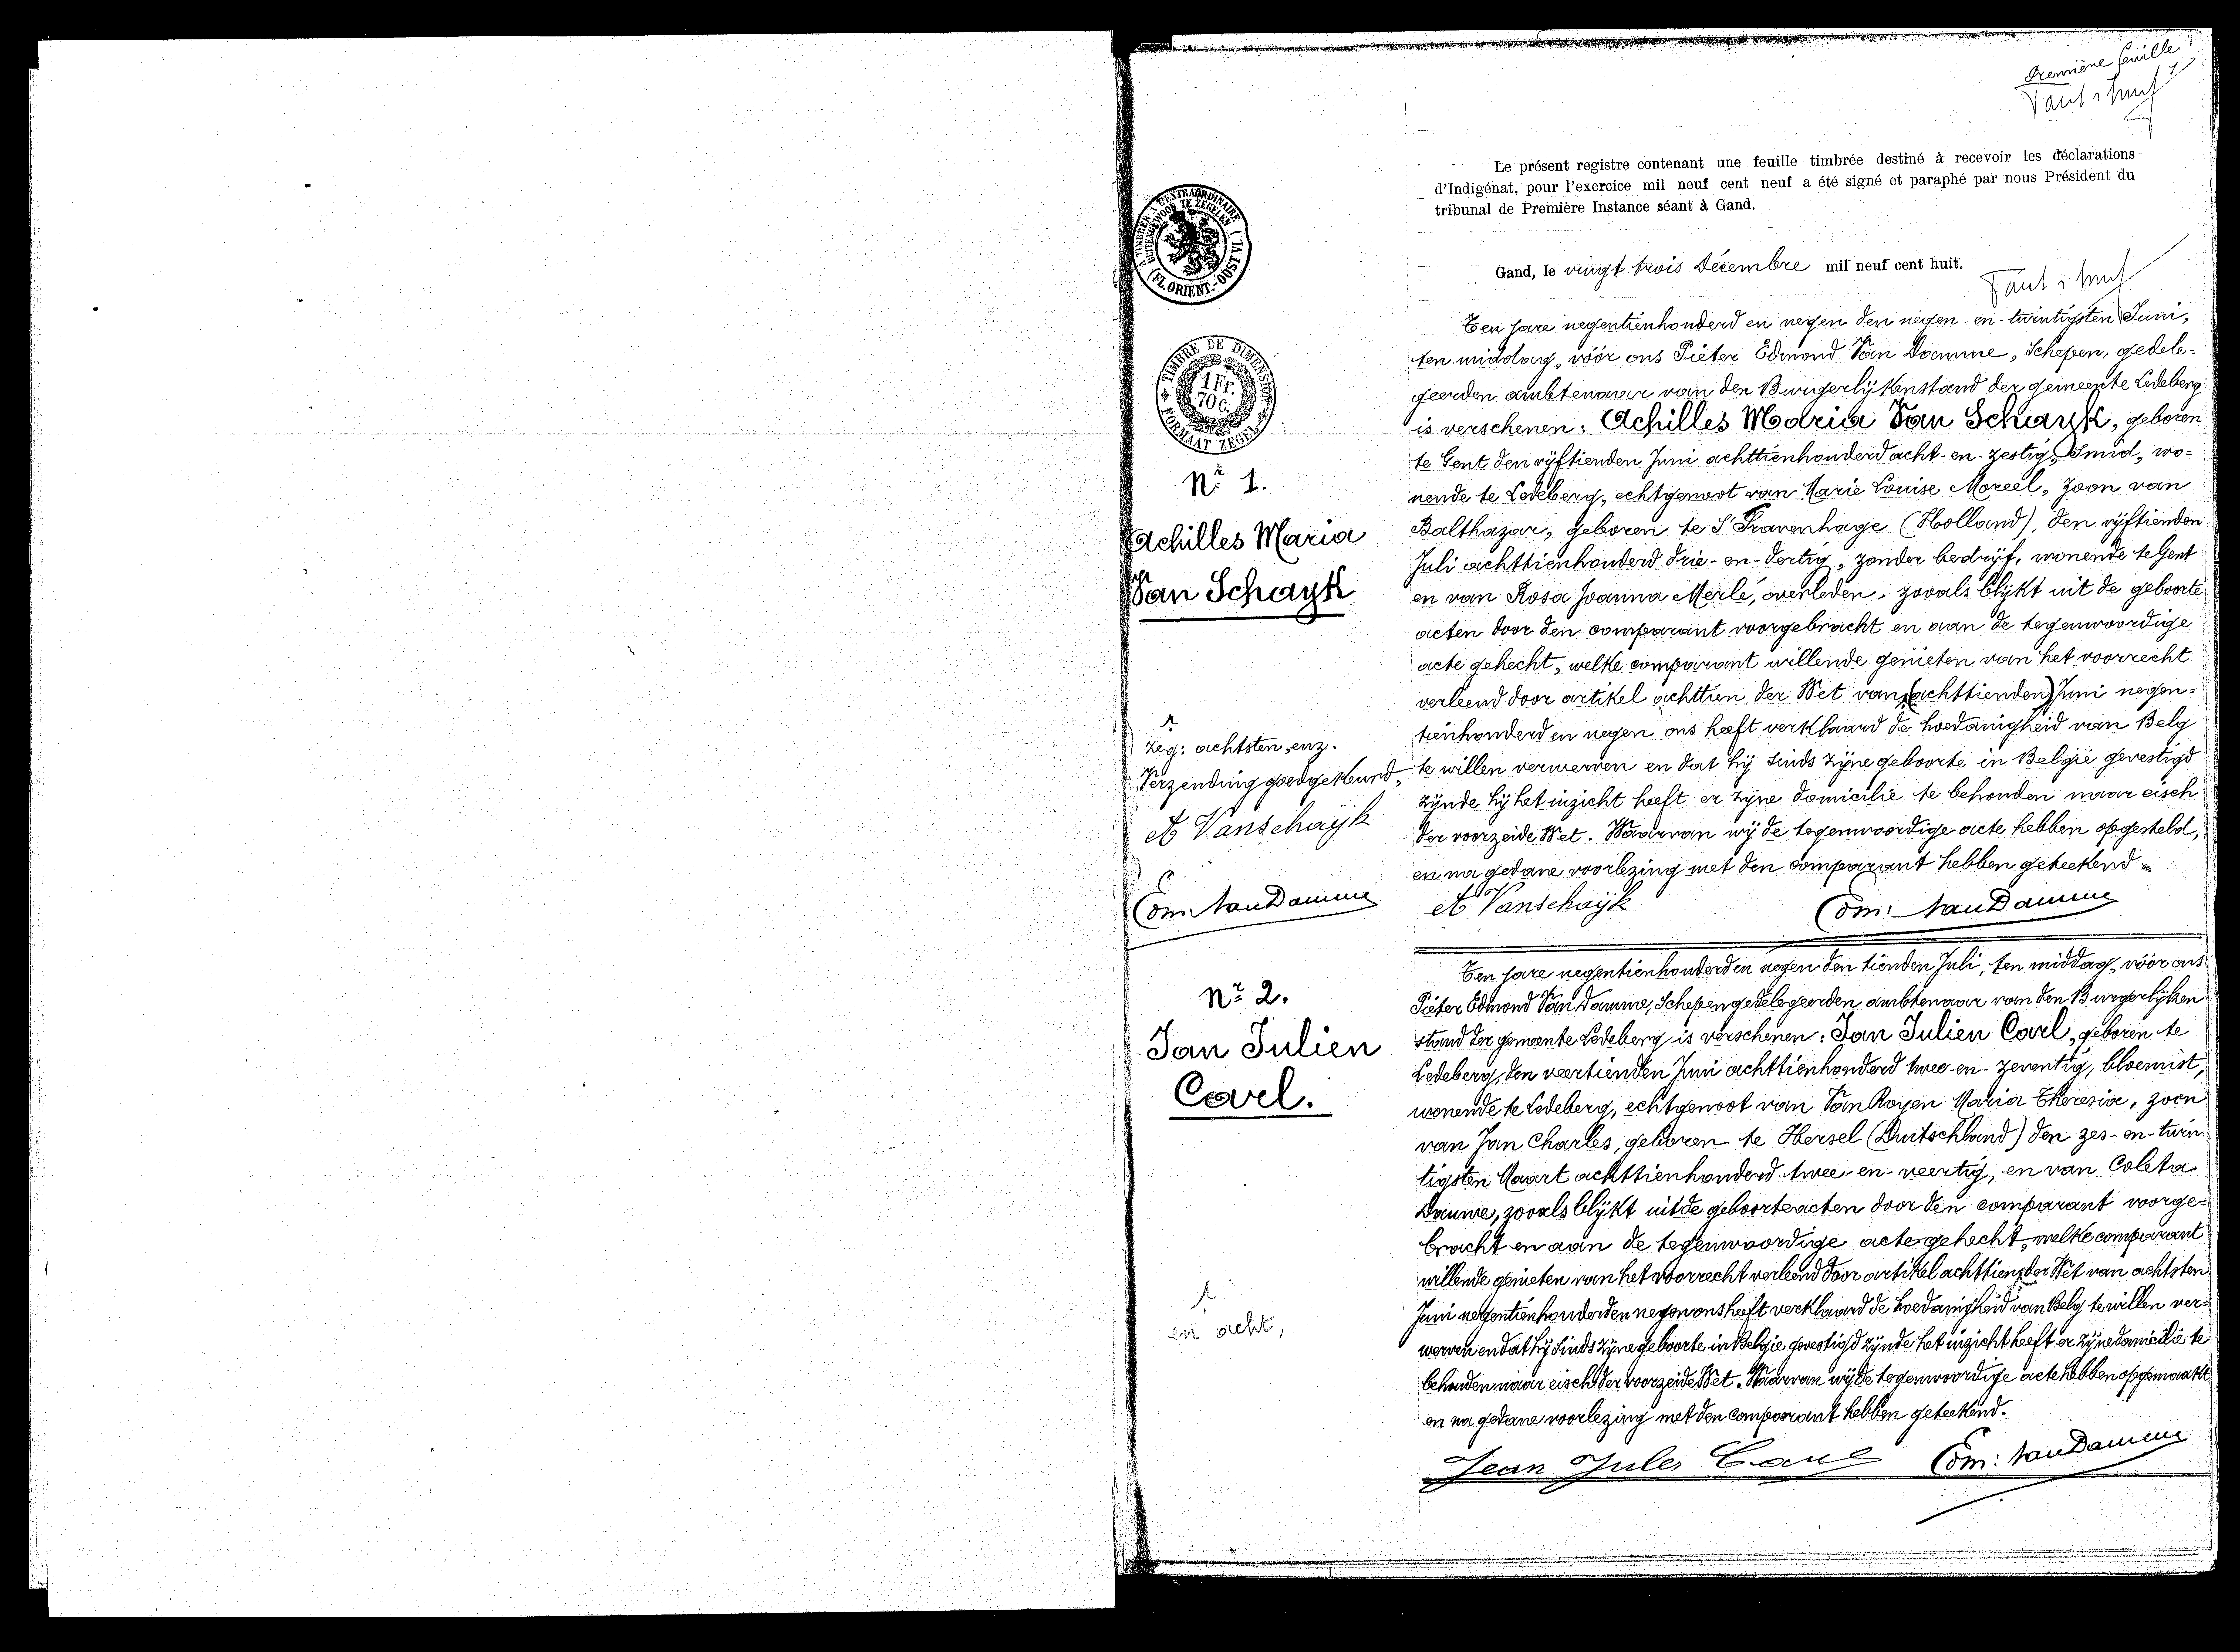 Première feuille
Le présent registre contenant une feuille timbrée destiné à recevoir les déclarations
d'Indigénat, pour l'exercice mil neuf cent neuf a été signé et paraphé par nous Président du
tribunal de Première Instance séant à Gand.
Gand, le vingt trois Décembre mil neuf cent huit.
A TIMBRER A L'EXTRAORDINAIRE
BUITENGEWOON TE ZEGELEN
(FL. ORIENT.-OOST VL.)
TIMBRE DE DIMENSION
1 Fr.
70 c.
FORMAAT ZEGEL
Nr 1.
Achilles Maria
Van Schayk
Ten jare negentienhonderd en negen den negen-en-twintigsten Juni,
ten middag, vóór ons Pieter Edmond Van Damme, Schepen, gedele-
geerden ambtenaar van den Burgerlijkenstand der gemeente Ledeberg
is verschenen: Achilles Maria Van Schayk, geboren
te Gent den vijftienden Juni achttienhonderd acht-en-zestig, Smid, wo-
nende te Ledeberg, echtgenoot van Marie Louise Moreel, zoon van
Balthazar, geboren te S'Gravenhage (Holland), den vijftienden
Juli achttienhonderd drie-en-dertig, zonder bedrijf, wonende te Gent
en van Rosa Joanna Merlé, overleden, zooals blijkt uit de geboorte
acten door den comparant voorgebracht en aan de tegenwoordige
acte gehecht, welke comparant willende genieten van het voorrecht
verleend door artikel achttien der Wet van (achttienden) Juni negen-
tienhonderd en negen ons heeft verklaard de hoedanigheid van Belg
te willen verwerven en dat hij sinds zijne geboorte in België gevestigd
zijnde hij het inzicht heeft er zijne domicilie te behouden naar eisch
der voorzeide Wet. Waarvan wij de tegenwoordige acte hebben opgesteld,
en na gedane voorlezing met den comparant hebben geteekend
zeg: achtsten, enz.
Verzending goedgekeurd,
A Vanschayk
Edm: Van Damme
A Vanschayk Edm: Van Damme
Nr 2.
Jan Julien
Carl.
Ten jare negentienhonderd en negen den tienden Juli, ten middag, vóór ons
Pieter Edmond Van Damme, Schepen gedelegeerden ambtenaar van den Burgerlijken
stand der gemeente Ledeberg is verschenen: Jan Julien Carl, geboren te
Ledeberg, den veertienden Juni achttienhonderd twee-en-zeventig, bloemist,
wonende te Ledeberg, echtgenoot van Van Royen Maria Theresia, zoon
van Jan Charles, geboren te Hersel (Duitschland) den zes-en-twin
tigsten Maart achttienhonderd twee-en-veertig, en van Coleta
Dauwe, zooals blijkt uit de geboorteacten door den comparant voorge-
bracht en aan de tegenwoordige acte gehecht, welke comparant
willende genieten van het voorrecht verleend door artikel achttien der Wet van achtsten
Juni negentienhonderd en negen ons heeft verklaard de hoedanigheid van Belg te willen ver-
werven en dat hij sinds zijne geboorte in België gevestigd zijnde het inzicht heeft er zijne domicilie te
behouden naar eisch der voorzeide Wet. Waarvan wij de tegenwoordige acte hebben opgemaakt
en na gedane voorlezing met den comparant hebben geteekend.
en acht,
Jean Jules Carl Edm: Van Damme